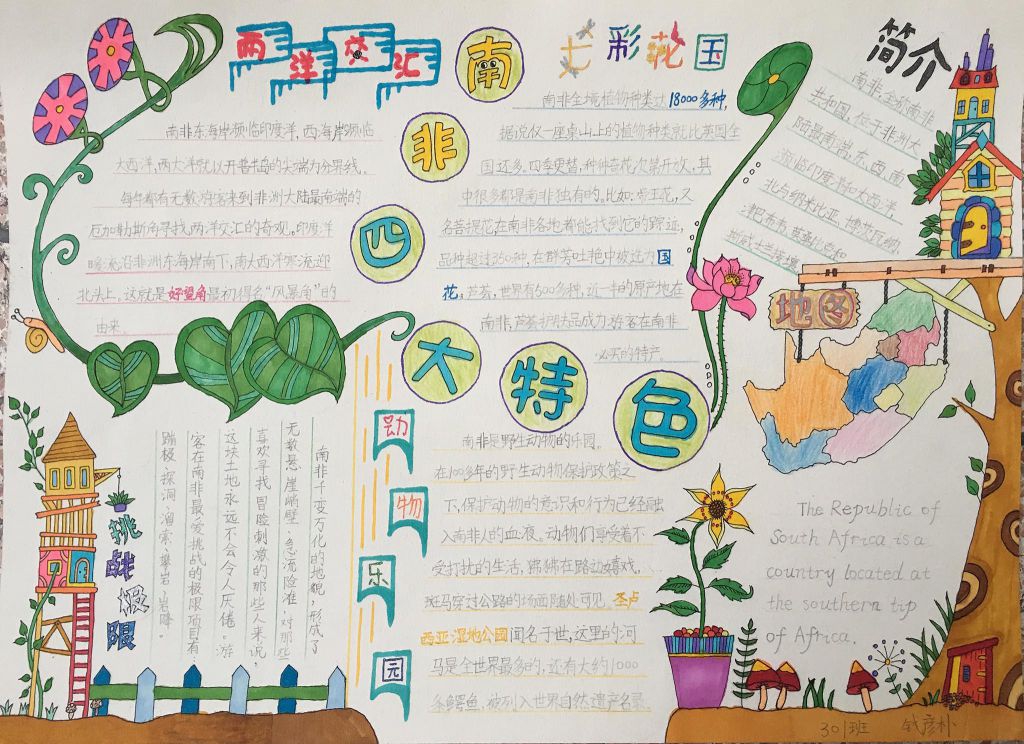 南非四大特色
两洋交汇
南非东海岸濒临印度洋,西海岸濒临
大西洋,两大洋就以开普半岛的尖端为分界线。
每年都有无数游客来到非洲大陆最南端的
厄加勒斯角寻找两洋交汇的奇观。印度洋
暖流沿非洲东海岸南下,南大西洋寒流迎
北头上。这就是好望角最初得名“风暴角”的
由来。
七彩花国
南非全境植物种类达18000多种,
据说仅一座桌山上的植物种类就比英国全
国还多。四季更替,种种奇花次第开放,其
中很多都是南非独有的。比如:帝王花,又
名菩提花在南非各地都能找到它的踪迹,
品种超过350种,在群芳吐艳中被选为国
花,芦荟,世界有500多种,近一半的原产地在
南非,芦荟护肤品成为游客在南非
必买的特产。
简介
南非,全称南非
共和国,位于非洲大
陆最南端,东、西、南
濒临印度洋和大西洋,
北与纳米比亚,博茨瓦纳,
津巴布韦,莫桑比克和
斯威士兰接壤
地图
挑战极限
南非千变万化的地貌,形成了
无数悬崖峭壁、急流险滩,对那些
喜欢寻找冒险刺激的那些人来说,
这块土地永远不会令人厌倦。游
客在南非最爱挑战的极限项目有:
蹦极、探洞、溜索、攀岩、岩降。
动物乐园
南非是野生动物的乐园。
在100多年的野生动物保护政策之
下,保护动物的意识和行为已经融
入南非人的血液。动物们享受着不
受打扰的生活,狒狒在路边嬉戏,
斑马穿过公路的场面随处可见。圣卢
西亚湿地公园闻名于世,这里的河
马是全世界最多的,还有大约1000
条鳄鱼,被列入世界自然遗产名录。
The Republic of
South Africa is a
country located at
the southern tip
of Africa.
301班 钱彦朴